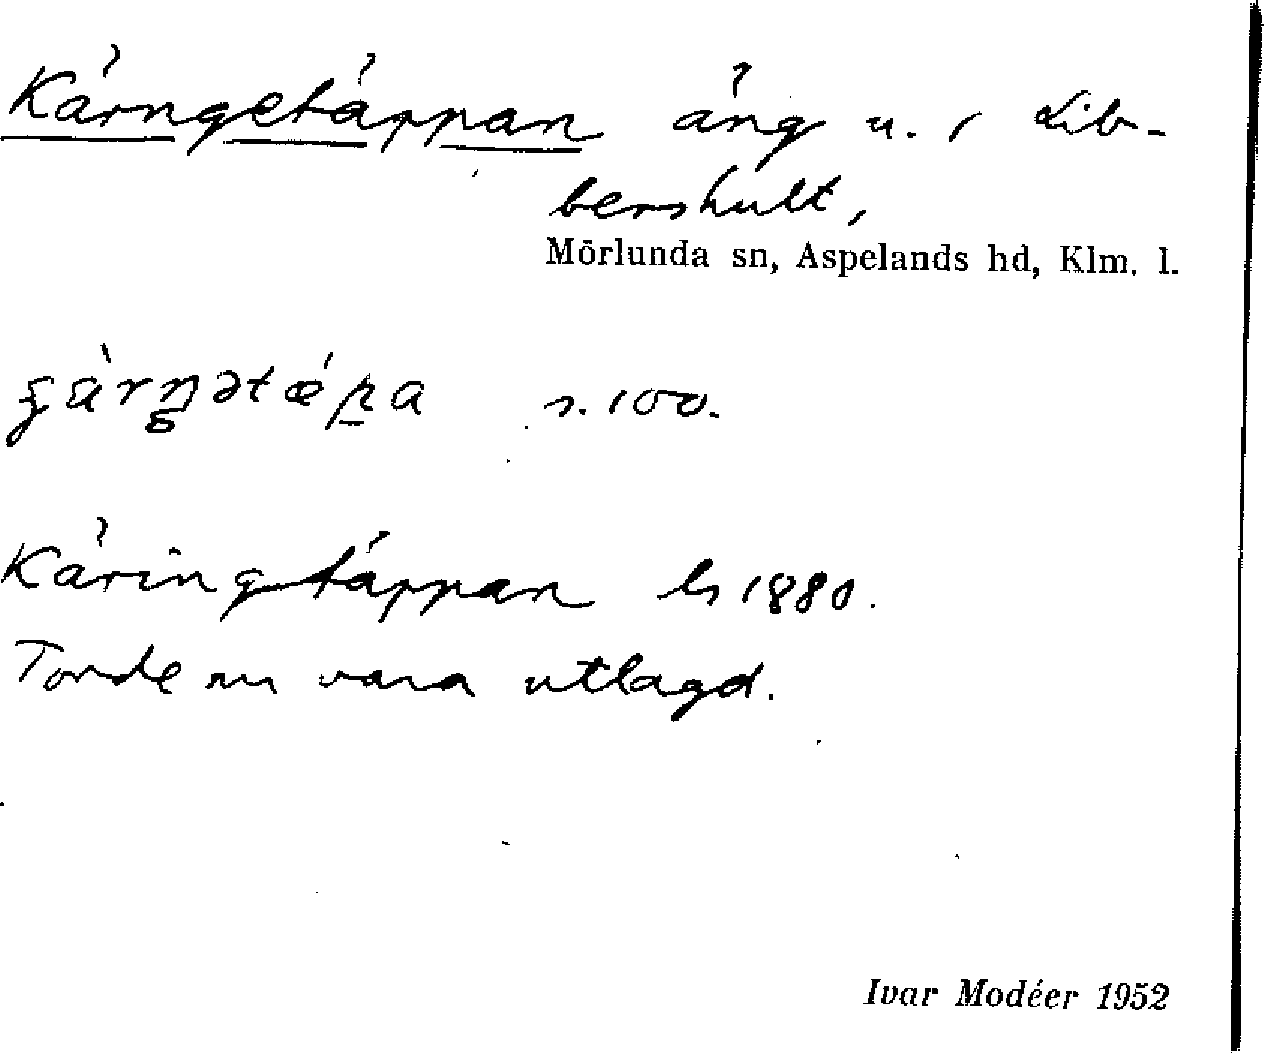 Kärngetäppan äng u. i Lib-
bershult,
Mörlunda sn, Aspelands hd, Klm. l.
s. 100.
Käringtäppan ls 1880.
Torde nu vara utlagd.
Ivar Modéer 1952